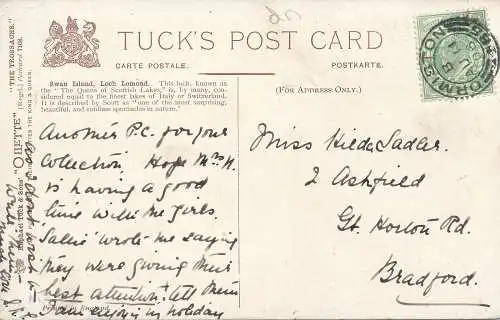 TUCK'S POST CARD
CARTE POSTALE.
POSTKARTE.
Swan Island, Loch Lomond. This loch, known as
the "The Queen of Scottish Lakes," is, by many, con-
sidered equal to the finest lakes of Italy or Switzerland.
It is described by Scott as "one of the most surprising,
beautiful, and sublime spectacles in nature."
(FOR ADDRESS ONLY.)
Another P.C. for your
Collection. Hope Mrs N.
is having a good
time with the girls.
Sallie wrote me saying
they were giving their
best attention. tell them
I am enjoying my holiday
Printed in England.
Miss Hilda Sadler.
2 Ashfield
Gt. Horton Rd.
Bradford.
"THE TROSSACHS."
Raphael Tuck & Sons' "OILETTE"